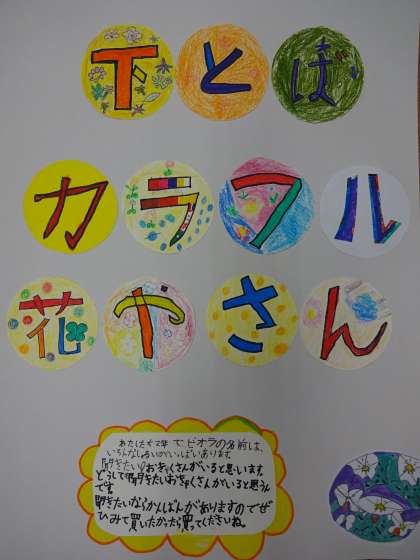 下とば
カラフル
花やさん
わたしたち2年で ビオラの名前は、
いろんなしゅるいのがいっぱいあります
聞きたいおきゃくさんがいると思います
聞きたいおきゃくさんがいると思うん
です
聞きたいならかんばんがありますのでぜ
ひみて買いたかったら買ってくださいね。